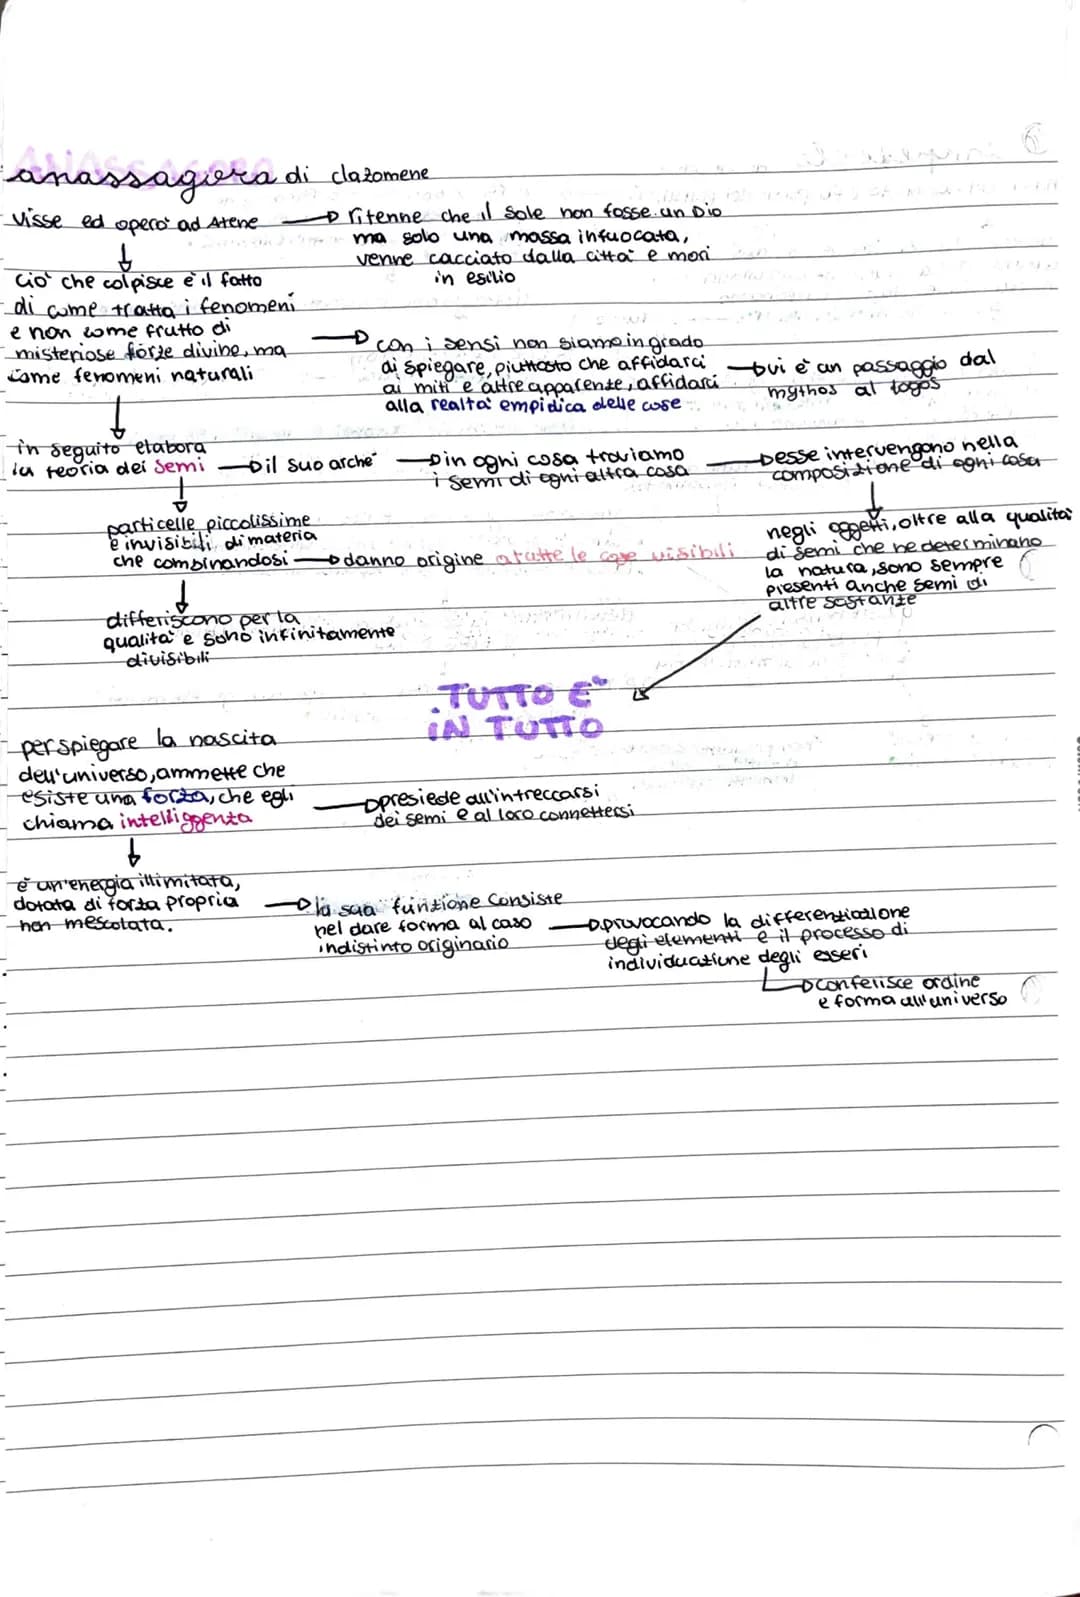 anassagora di clazomene
visse ed opero' ad Atene
ritenne che il Sole non fosse un Dio
ma solo una massa infuocata,
venne cacciato dalla citta' e mori
in esilio
cio' che colpisce e' il fatto
di come tratta i fenomeni
e non come frutto di
misteriose forze divine, ma
come fenomeni naturali
con i sensi non siamo in grado
di spiegare, piuttosto che affidarci
ai miti e altre apparenze, affidarci
alla realta' empidica delle cose
vui e' un passaggio dal
mythos al logos
in seguito elabora
la teoria dei Semi
il suo arche'
in ogni cosa troviamo
i semi di ogni altra cosa
esse intervengono nella
composizione di ogni cosa
particelle piccolissime
e invisibili di materia
che combinandosi
danno origine a tutte le cose visibili
negli oggetti, oltre alla qualita'
di semi che ne determinano
la natura, sono sempre
presenti anche semi di
altre sostanze
differiscono per la
qualita' e sono infinitamente
divisibili
TUTTO E'
IN TUTTO
per spiegare la nascita
dell'universo, ammette che
esiste una forza, che egli
chiama intelliggenza
presiede all'intreccarsi
dei semi e al loro connettersi
e' un'energia illimitata,
dotata di forza propria
non mescolata.
la sua funzione consiste
nel dare forma al caso
indistinto originario
provocando la differenziazione
degli elementi e il processo di
individuazione degli esseri
conferisce ordine
e forma all'universo